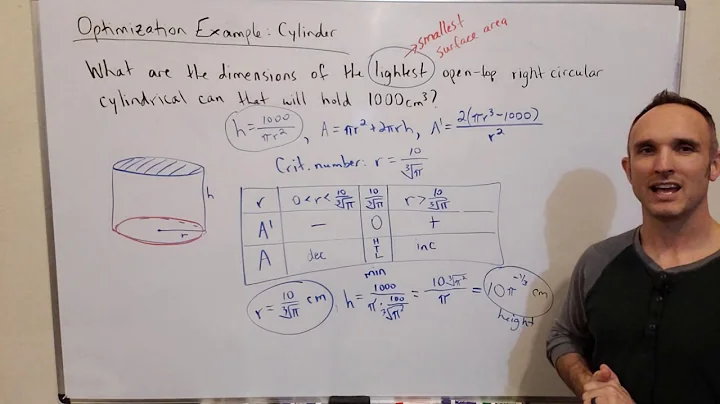 Optimization Example: Cylinder
smallest surface area
What are the dimensions of the lightest open-top right circular
cylindrical can that will hold 1000cm³?
h = 1000/πr², A = πr² + 2πrh, A' = 2(πr³-1000)/r²
Crit. number: r = 10/∛π
h
r
r 0<r<10/∛π 10/∛π r>10/∛π
A' − 0 +
A dec HTL inc
min
r = 10/∛π cm h = 1000/(π·100/∛π²) = 10∛π²/π = 10π^-1/3 cm
height